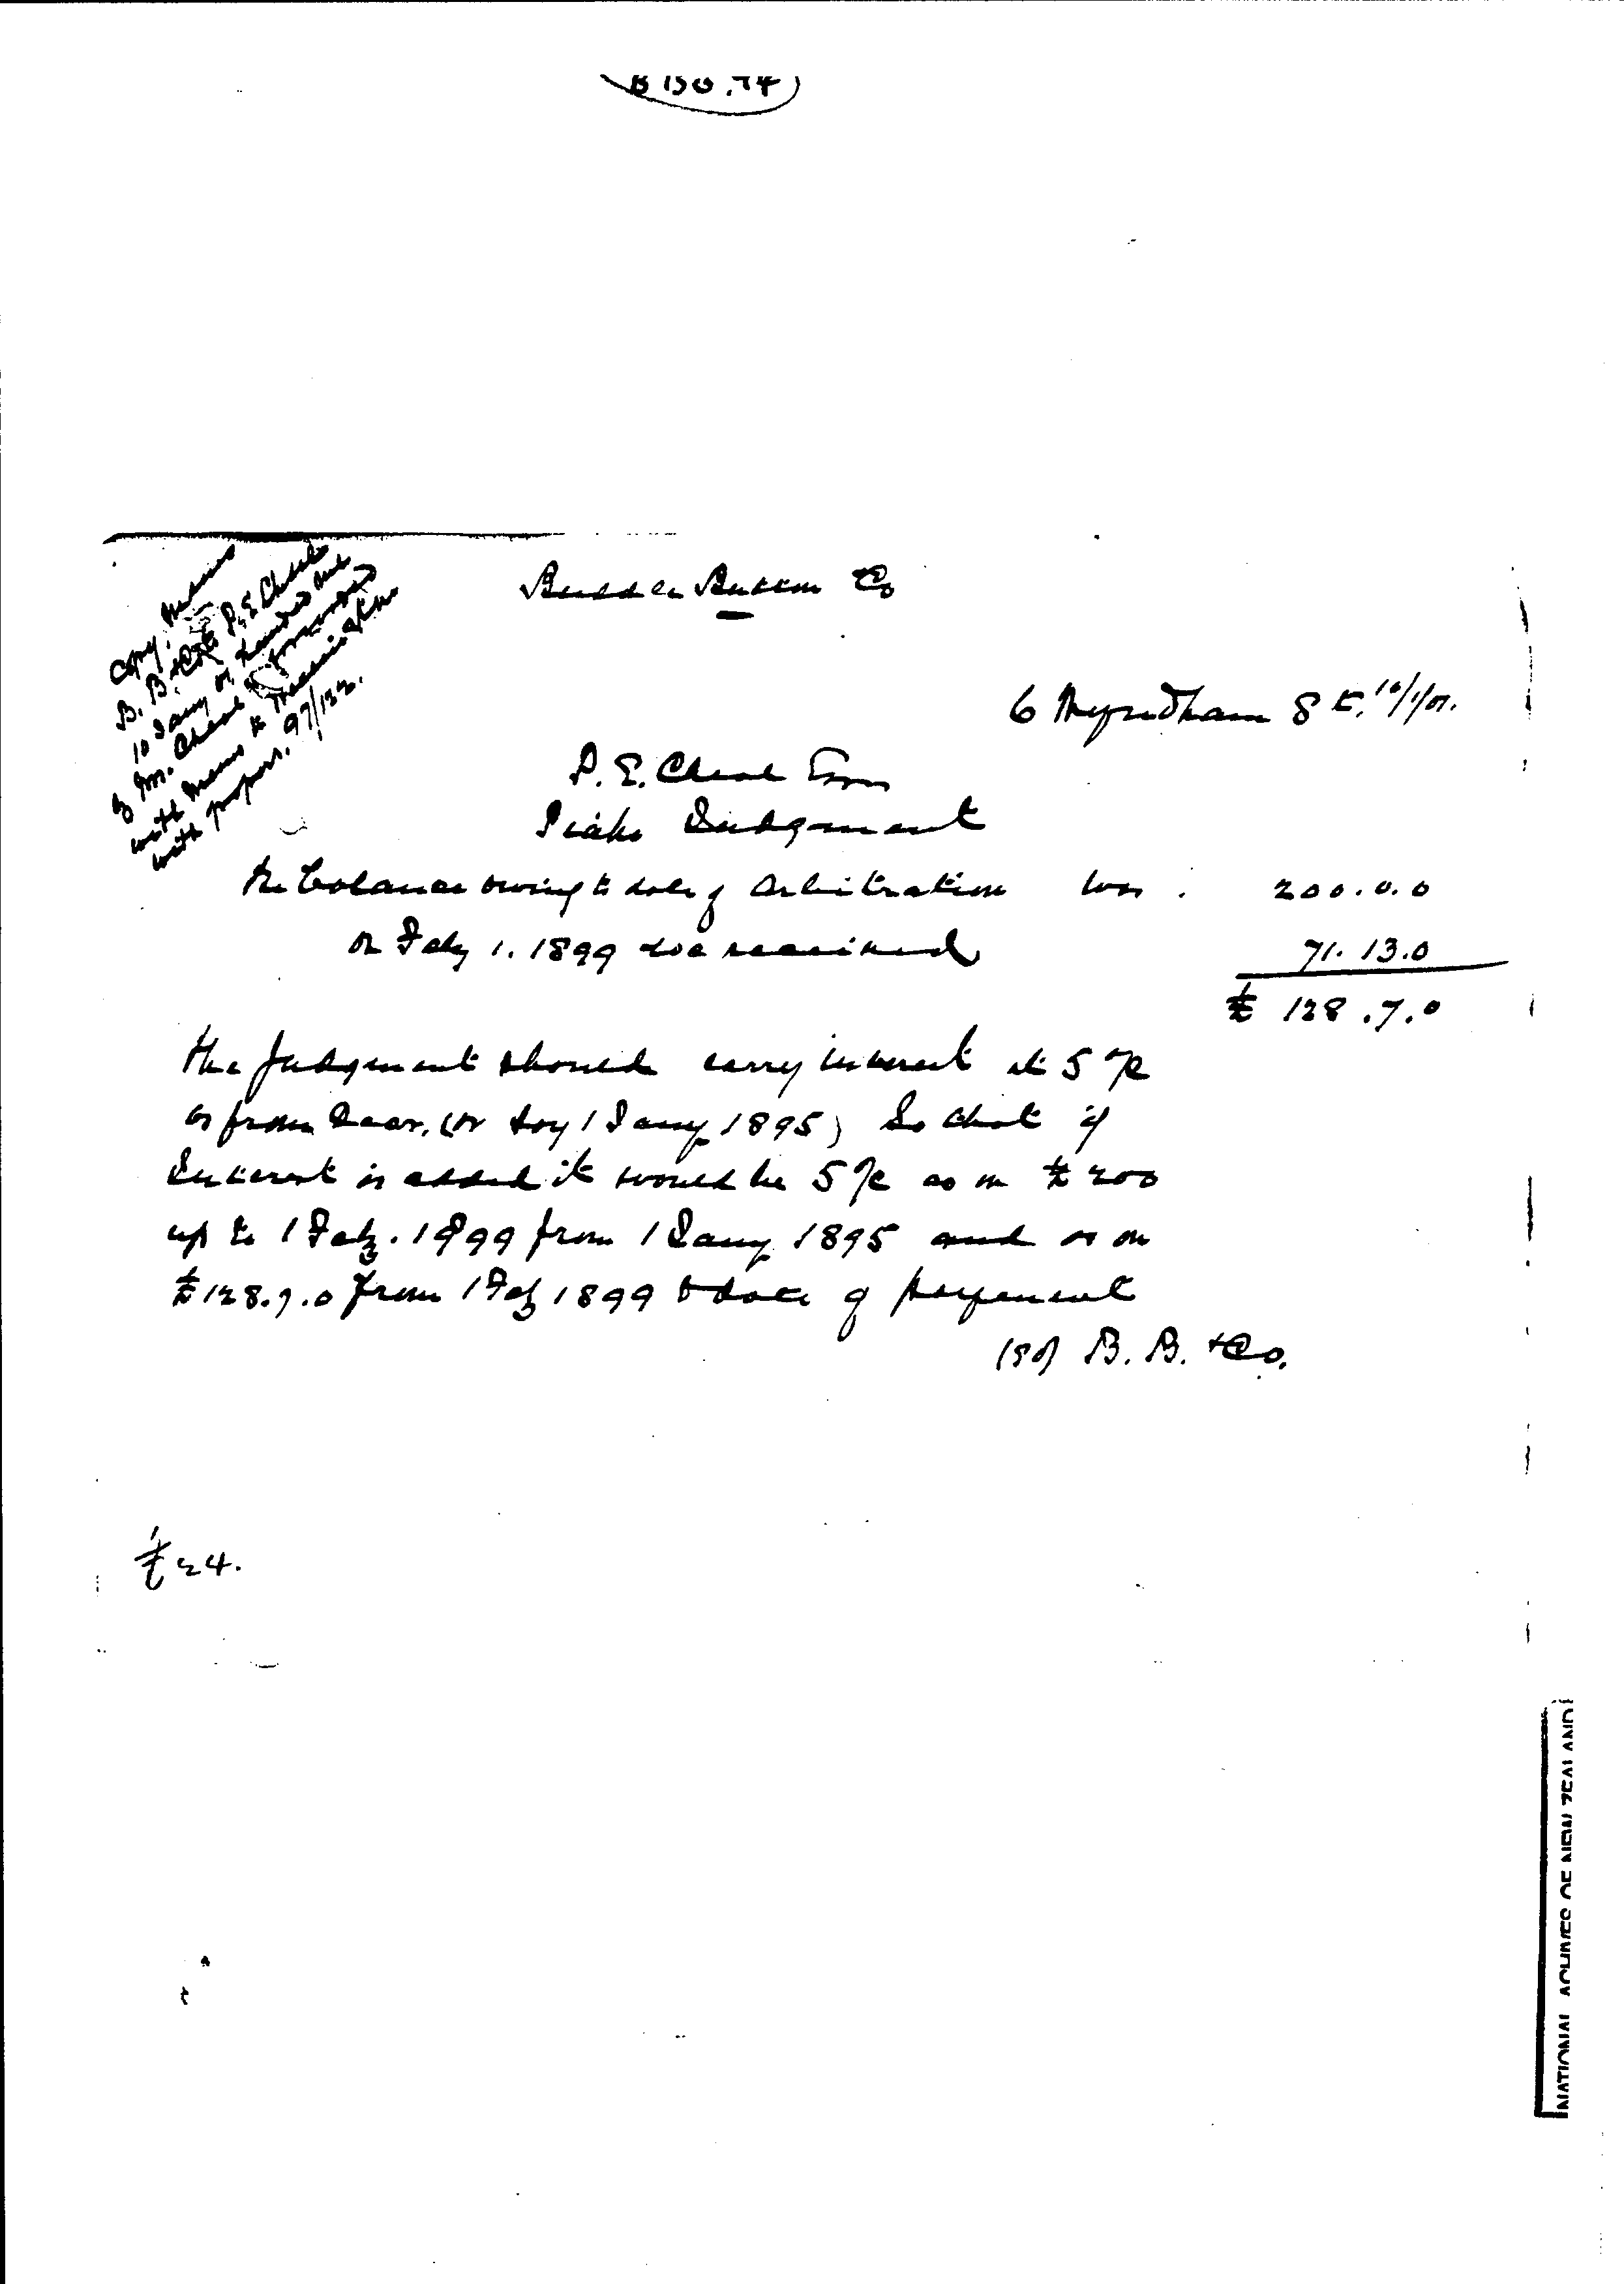 B 150.74
Copy, memo
B. B. & Co to P. E. Cheal
10 Jany 01 handed me
by Mr. Cheal & forwarded
with memo to Wellington
with papers. 97/132.
Co
6 Wyndham St. 10/1/01.
P. E. Cheal Esq
Piako Judgment
The balance owing to date of Arbitration was . 200.0.0
on Feby 1. 1899 we received 71.13.0
£ 128.7.0
the judgment should carry interest at 5 %
as from (or say 1 Jany 1895) So that if
Interest is added it would be 5 % as on £ 200
up to 1 Feby. 1899 from 1 Jany 1895 and as on
£128.7.0 from 1 Feby 1899 to date of payment
(sg) B. B. & Co.
£24.
NATIONAL ARCHIVES OF NEW ZEALAND